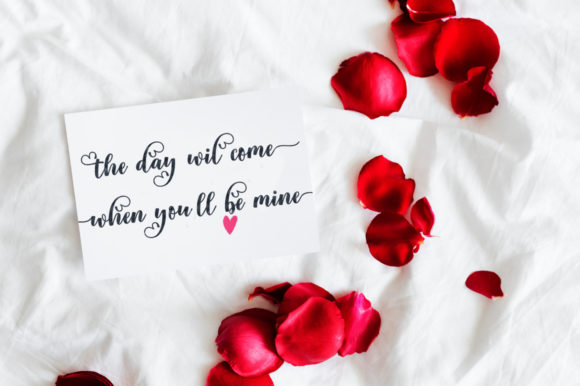 the day wil come
when you'll be mine